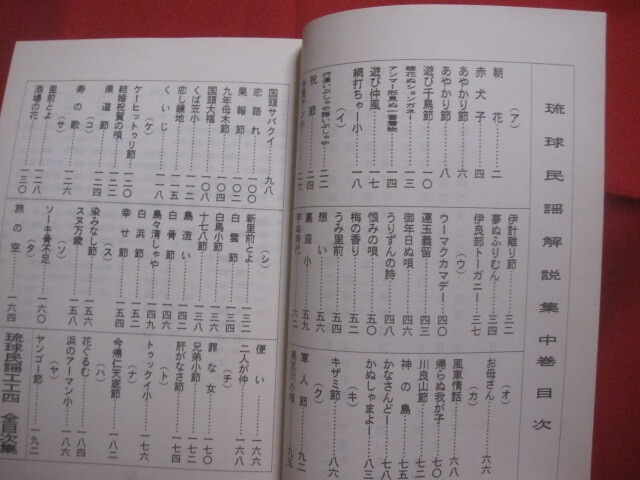 琉球民謡解説集 中巻 目次
(ア)
朝花……二
赤犬子……四
あやかり節……六
あやかり節……八
遊び千鳥節……一〇
綾花ぬションガネー……一三
アンマー形見ぬ一番着物……一四
遊び仲風……一七
網打ちゃー小……一八
(イ)
行逢いぶしゃぬ語いぶしゃや……二二
祝節……二四
伊計離り節……三二
夢ぬふりむん……三五
伊良部トーガニー……三七
(ウ)
ウーマクカマデー……四〇
運玉義留……四三
御年日ぬ唄……四六
うりずんの詩……四八
恨みの唄……五〇
梅の香り……五二
うみ里前……五四
想い……五五
裏座小……五九
(オ)
お母さん……六六
(カ)
風車情話……六八
帰らぬ我が子……七〇
川良山節……七二
神の島……七五
かなさんどー……八一
かぬしゃまよー……八三
(キ)
キザミ節……八六
(ク)
軍人節……九二
国頭サバクイ……九八
恋語れ……一〇一
果報節……一〇二
九年母木節……一〇四
国頭大福……一〇八
くば笠小……一一〇
恋し鏡地……一一五
くいじ……一一八
(ケ)
ケーヒットゥリ節……一二〇
結婚祝賀の唄……一二二
県道節……一二四
(コ)
寿の歌……一二六
(サ)
里前とよ……一二八
酒場の花……一三〇
(シ)
新里前とよ……一三二
白雲節……一三四
白鳥小節……一三六
十七八節……一三八
島造い……一四二
白骨節……一四四
島々清しゃや……一四九
白浜節……一五二
幸せ節……一五四
(ス)
染みなし節……一五六
スヌ万歳……一五八
(ソ)
ソーキ骨不足……一六〇
(タ)
旅の空……一六四
便い……一六六
二人が仲……一六八
(チ)
罪な女……一七〇
兄弟小節……一七二
肝がなさ節……一七四
(ト)
トゥックイ小……一七六
(ハ)
今帰仁天底節……一八二
花ぐるむ……一八四
浜のアーマン小……一八六
(ヤ)
ヤンゴー節……一九二
琉球民謡工工四 全目次集